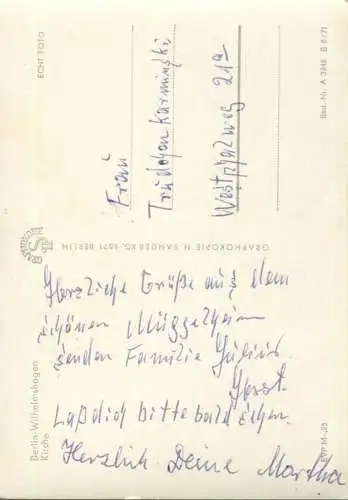 Herzliche Grüße aus dem
schönen Müggelheim
senden Familie Julius
Horst.
Laß dich bitte bald sehen.
Herzlich Deine Martha
Frau
Trudchen Karminski
Westphalweg 21a
ECHT FOTO
Best.-Nr. A 3348 B 6/71
GRAPHOKOPIE H. SANDER KG, 1071 BERLIN
Berlin-Wilhelmshagen
Kirche